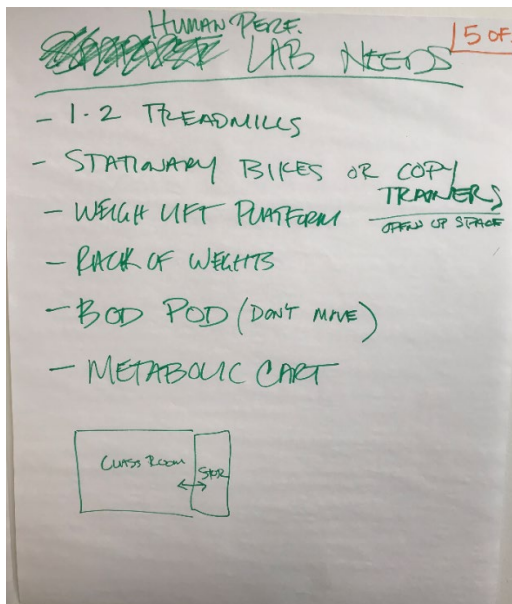 HUMAN PERF.
LAB NEEDS
5 OF
- 1-2 TREADMILLS
- STATIONARY BIKES OR COPY TRAINERS
OPENS UP SPACE
- WEIGH LIFT PLATFORM
- RACK OF WEIGHTS
- BOD POD (DON'T MOVE)
- METABOLIC CART
CLASS ROOM
STOR